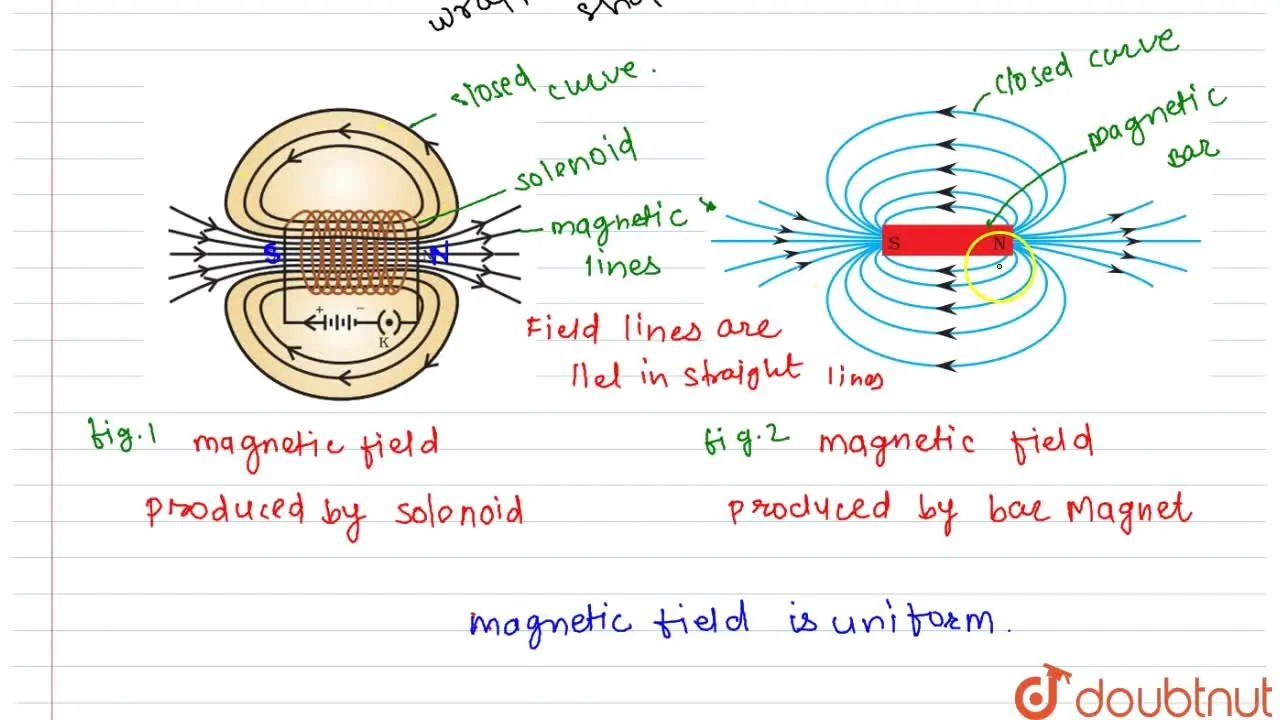 closed curve.
solenoid
magnetic
lines
S
N
+
-
K
closed curve
magnetic
Bar
S
N
Field lines are
llel in straight lines
fig.1 magnetic field
produced by solenoid
fig.2 magnetic field
produced by bar Magnet
magnetic field is uniform.
doubtnut